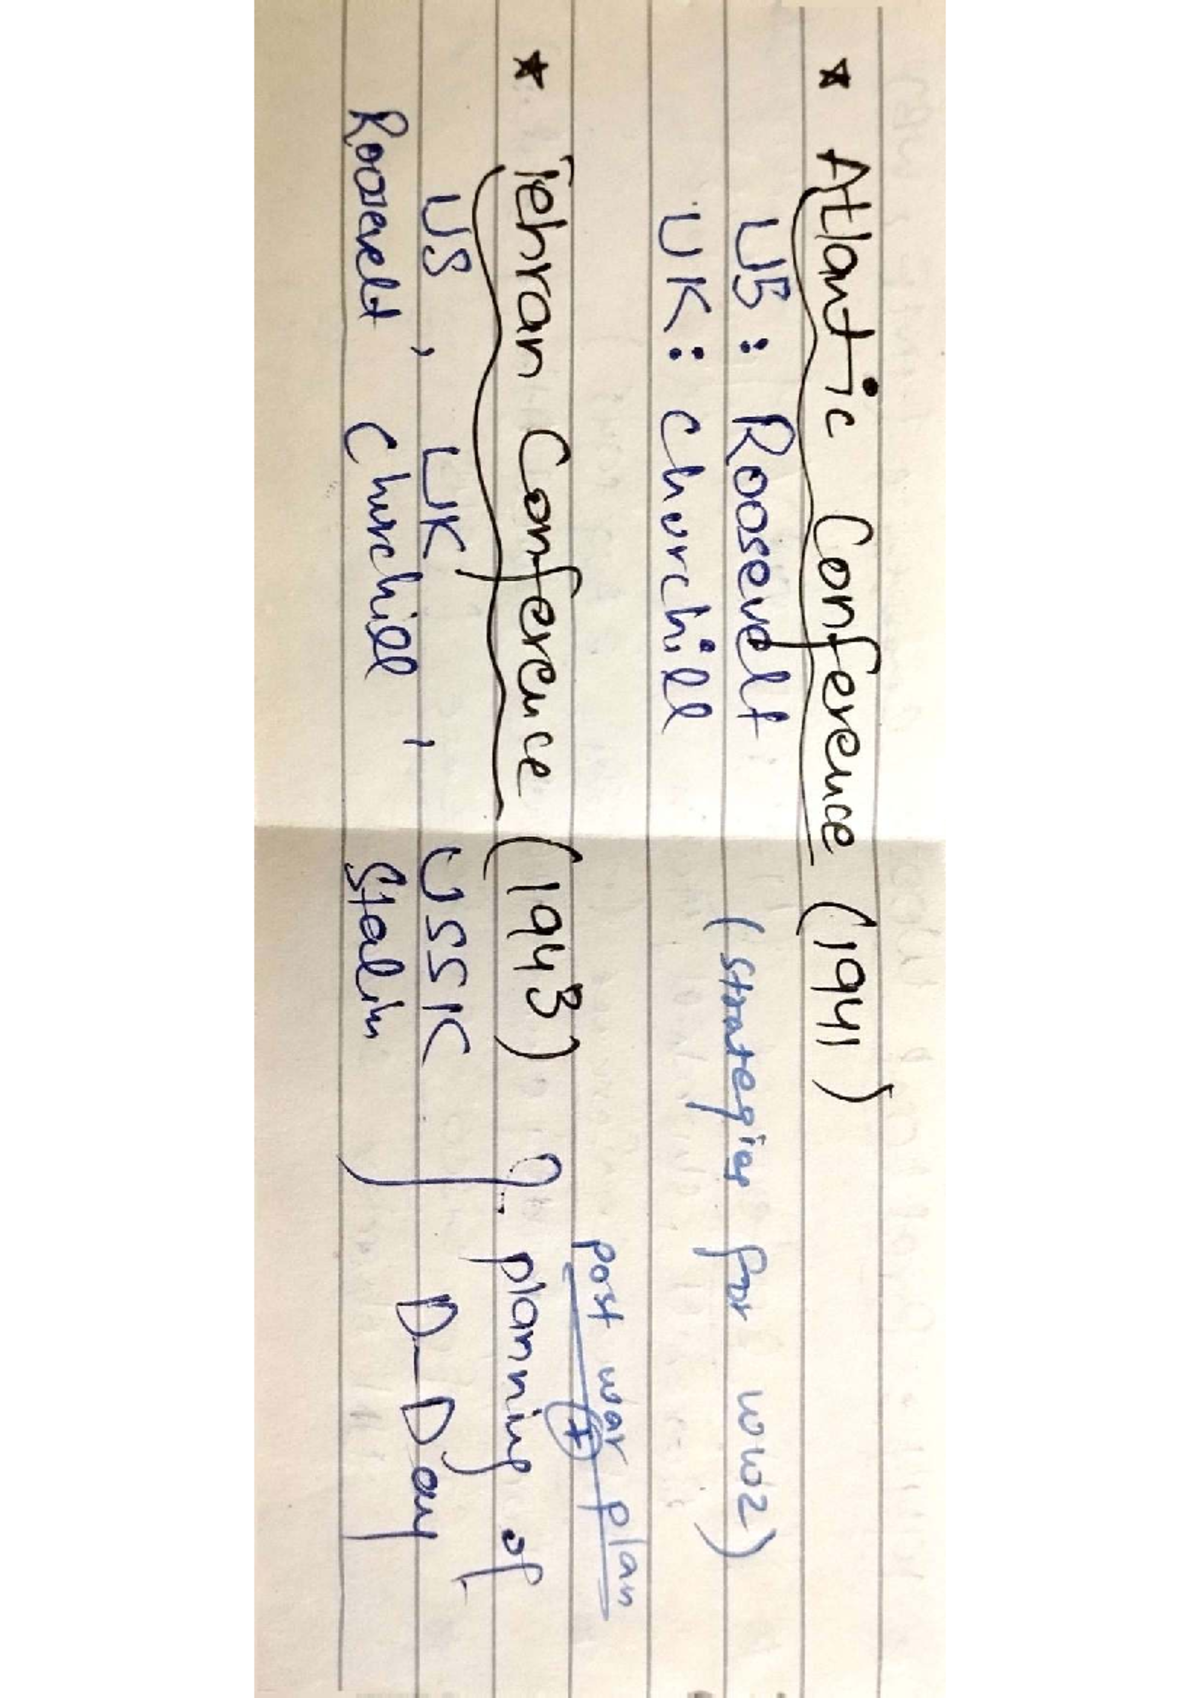 ★ Atlantic Conference (1941)
US : Roosevelt
UK : Churchill
(strategies for WW2)
★ Tehran Conference (1943)
US , UK , USSR
Roosevelt Churchill Stalin
post war plan
+
planning of
D-Day